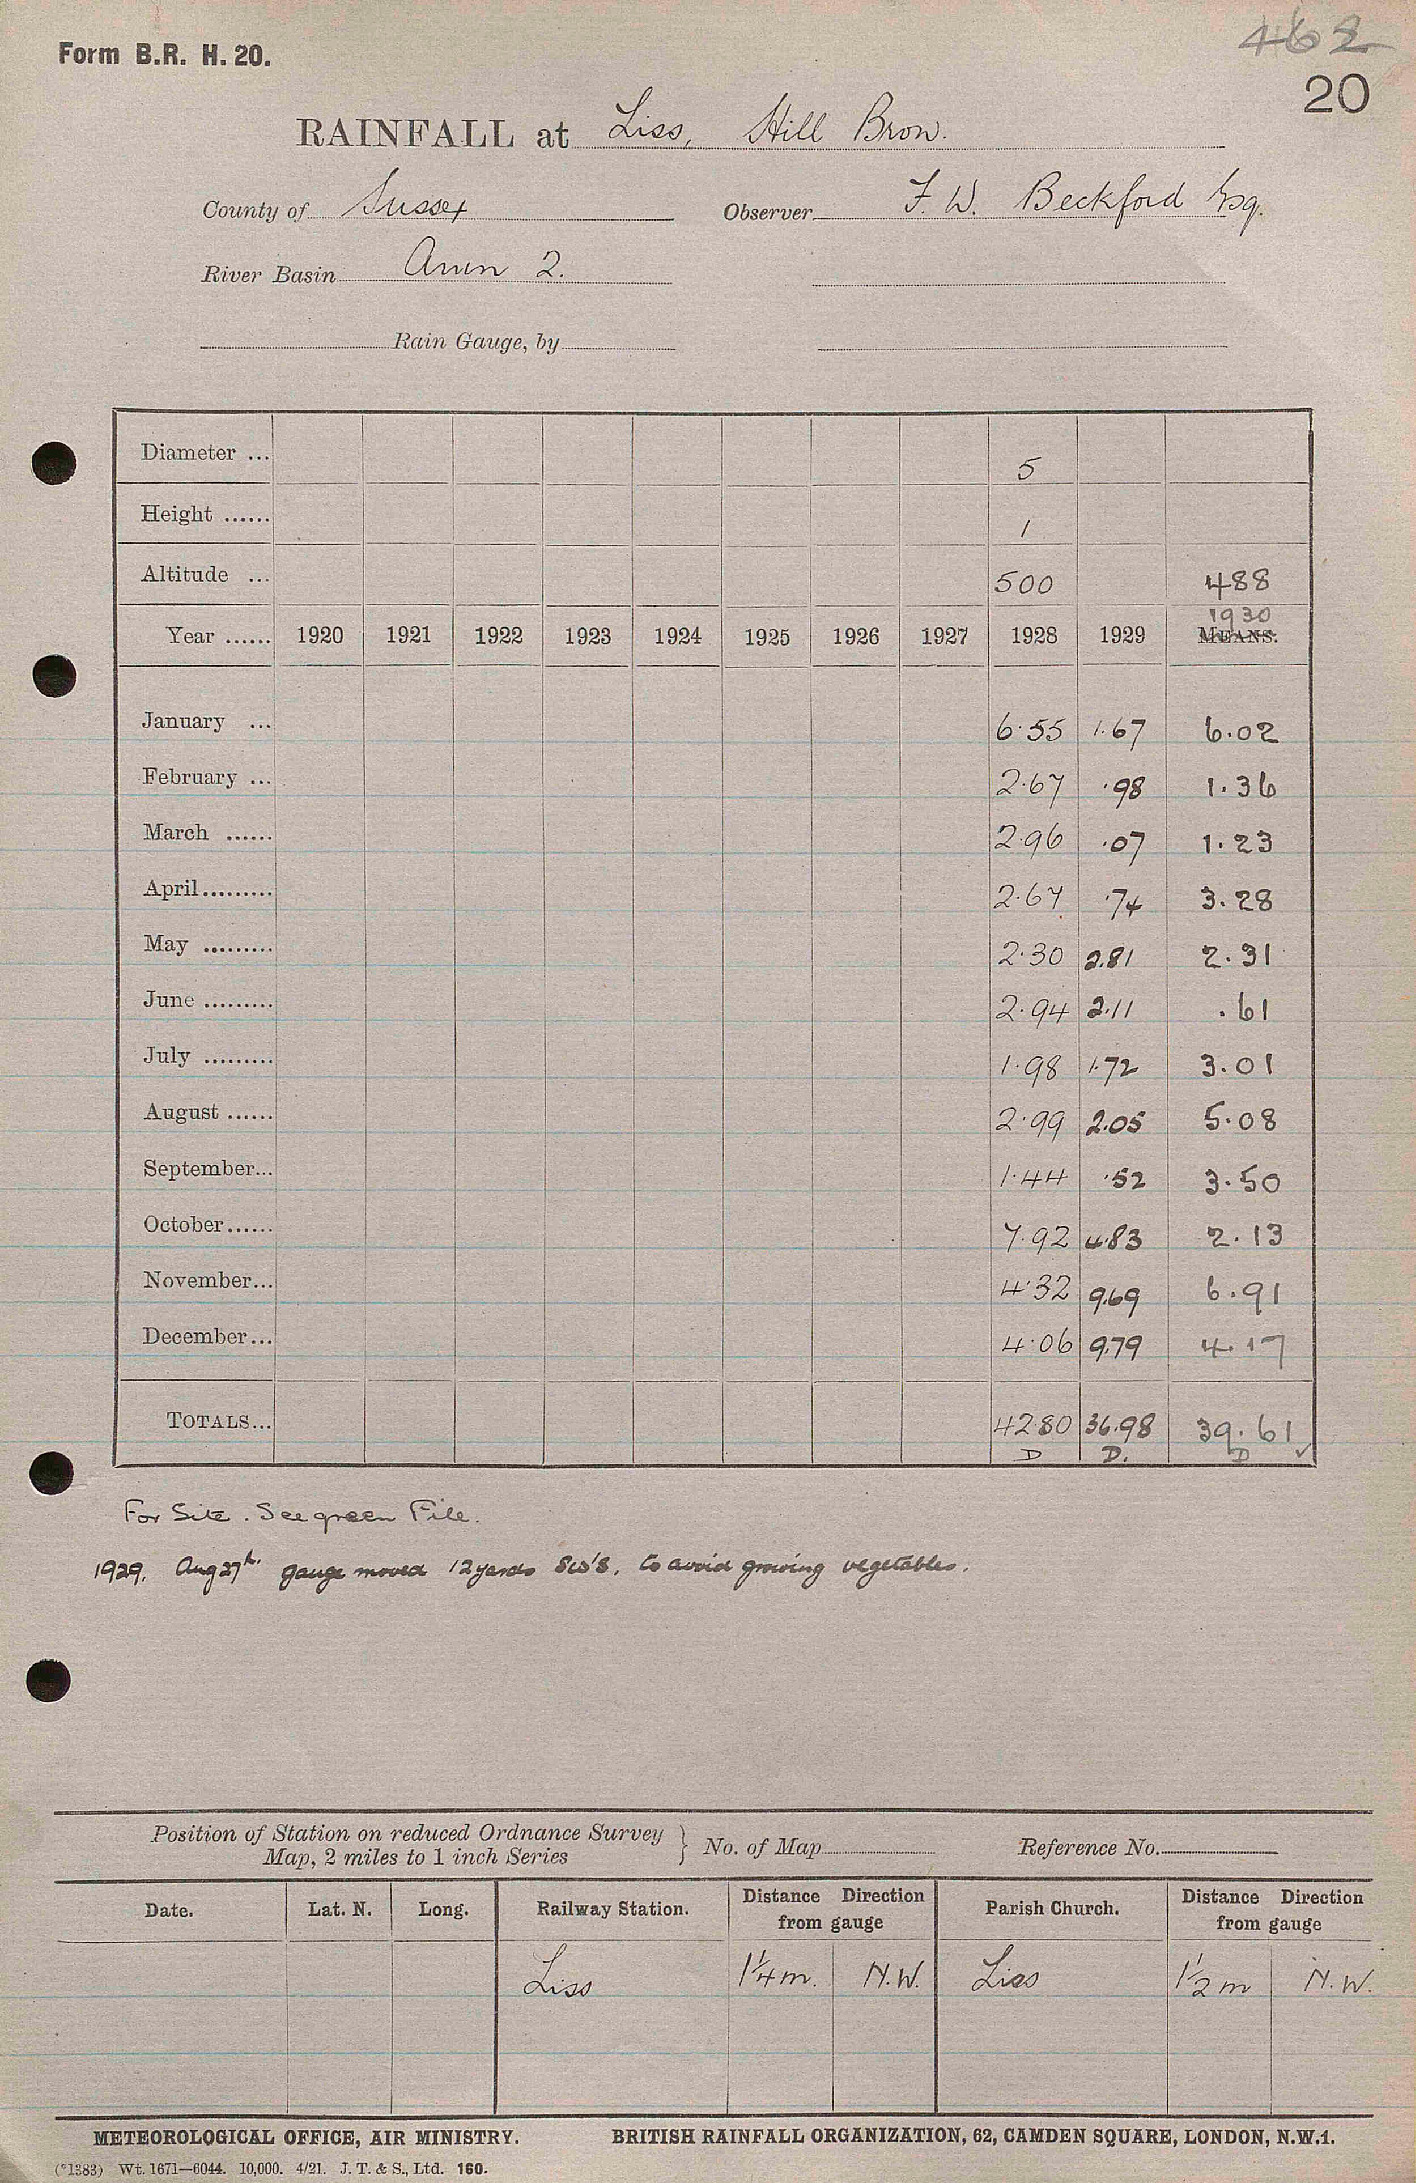 Form B.R. H. 20.
462
20
RAINFALL at Liss, Hill Brow.
County of Sussex Observer F. W. Beckford Esq.
River Basin Arun 2.
Rain Gauge, by
Diameter ... 5
Height ...... 1
Altitude ... 500 488
1930
Year ...... 1920 1921 1922 1923 1924 1925 1926 1927 1928 1929 MEANS.
January ... 6.55 1.67 6.02
February ... 2.67 .98 1.36
March ...... 2.96 .07 1.23
April ......... 2.67 .74 3.28
May ......... 2.30 2.81 2.31
June ......... 2.94 2.11 .61
July ......... 1.98 1.72 3.01
August ...... 2.99 2.05 5.08
September... 1.44 .52 3.50
October ...... 7.92 4.83 2.13
November... 4.32 9.69 6.91
December... 4.06 9.79 4.17
TOTALS... 42.80 36.98 39.61 ✓
D D. D
For Site. See green File.
1929. Aug 27th. gauge moved 12 yards SW'S. to avoid growing vegetables.
Position of Station on reduced Ordnance Survey
Map, 2 miles to 1 inch Series } No. of Map Reference No.
Date. Lat. N. Long. Railway Station. Distance Direction from gauge Parish Church. Distance Direction from gauge
Liss 1¼ m. N.W. Liss 1½ m N.W.
METEOROLOGICAL OFFICE, AIR MINISTRY. BRITISH RAINFALL ORGANIZATION, 62, CAMDEN SQUARE, LONDON, N.W.1.
(*1383) Wt. 1671—6044. 10,000. 4/21. J. T. & S., Ltd. 160.